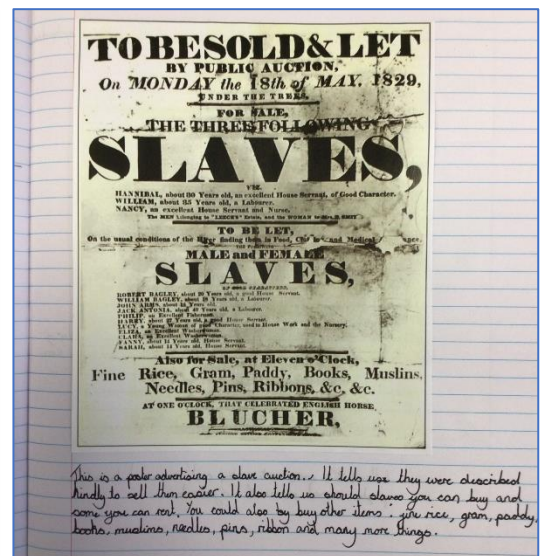 TO BE SOLD & LET
BY PUBLIC AUCTION,
On MONDAY the 18th of MAY, 1829,
UNDER THE TREES.
FOR SALE,
THE THREE FOLLOWING
SLAVES,
VIZ.
HANNIBAL, about 30 Years old, an excellent House Servant, of Good Character.
WILLIAM, about 35 Years old, a Labourer.
NANCY, an excellent House Servant and Nurse.
The MEN belonging to "LEECH'S" Estate, and the WOMAN to Mrs. D. SMIT
TO BE LET,
On the usual conditions of the Hirer finding them in Food, and Medical
MALE and FEMALE
SLAVES,
ROBERT BAGLEY, about 20 Years old, a good House Servant.
WILLIAM BAGLEY, about 18 Years old, a Labourer.
JOHN ARMS, about 18 Years old.
JACK ANTONIA, about 40 Years old, a Labourer.
PHILIP, an Excellent Fisherman.
HARRY, about 27 Years old, a good House Servant.
LUCY, a Young Woman of good Character, used to House Work and the Nursery.
ELIZA, an Excellent Washerwoman.
CLARA, an Excellent Washerwoman.
FANNY, about 14 Years old, House Servant.
SARAH, about 14 Years old, House Servant.
Also for Sale, at Eleven o'Clock,
Fine Rice, Gram, Paddy, Books, Muslins,
Needles, Pins, Ribbons, &c, &c.
AT ONE O'CLOCK, THAT CELEBRATED ENGLISH HORSE
BLUCHER,
This is a poster advertising a slave auction. It tells use they were described
kindly to sell them easier. It also tells us should slaves you can buy and
some you can rent. You could also by buy other items: rice, gram, paddy,
books, muslims, needles, pins, ribbon and many more things.